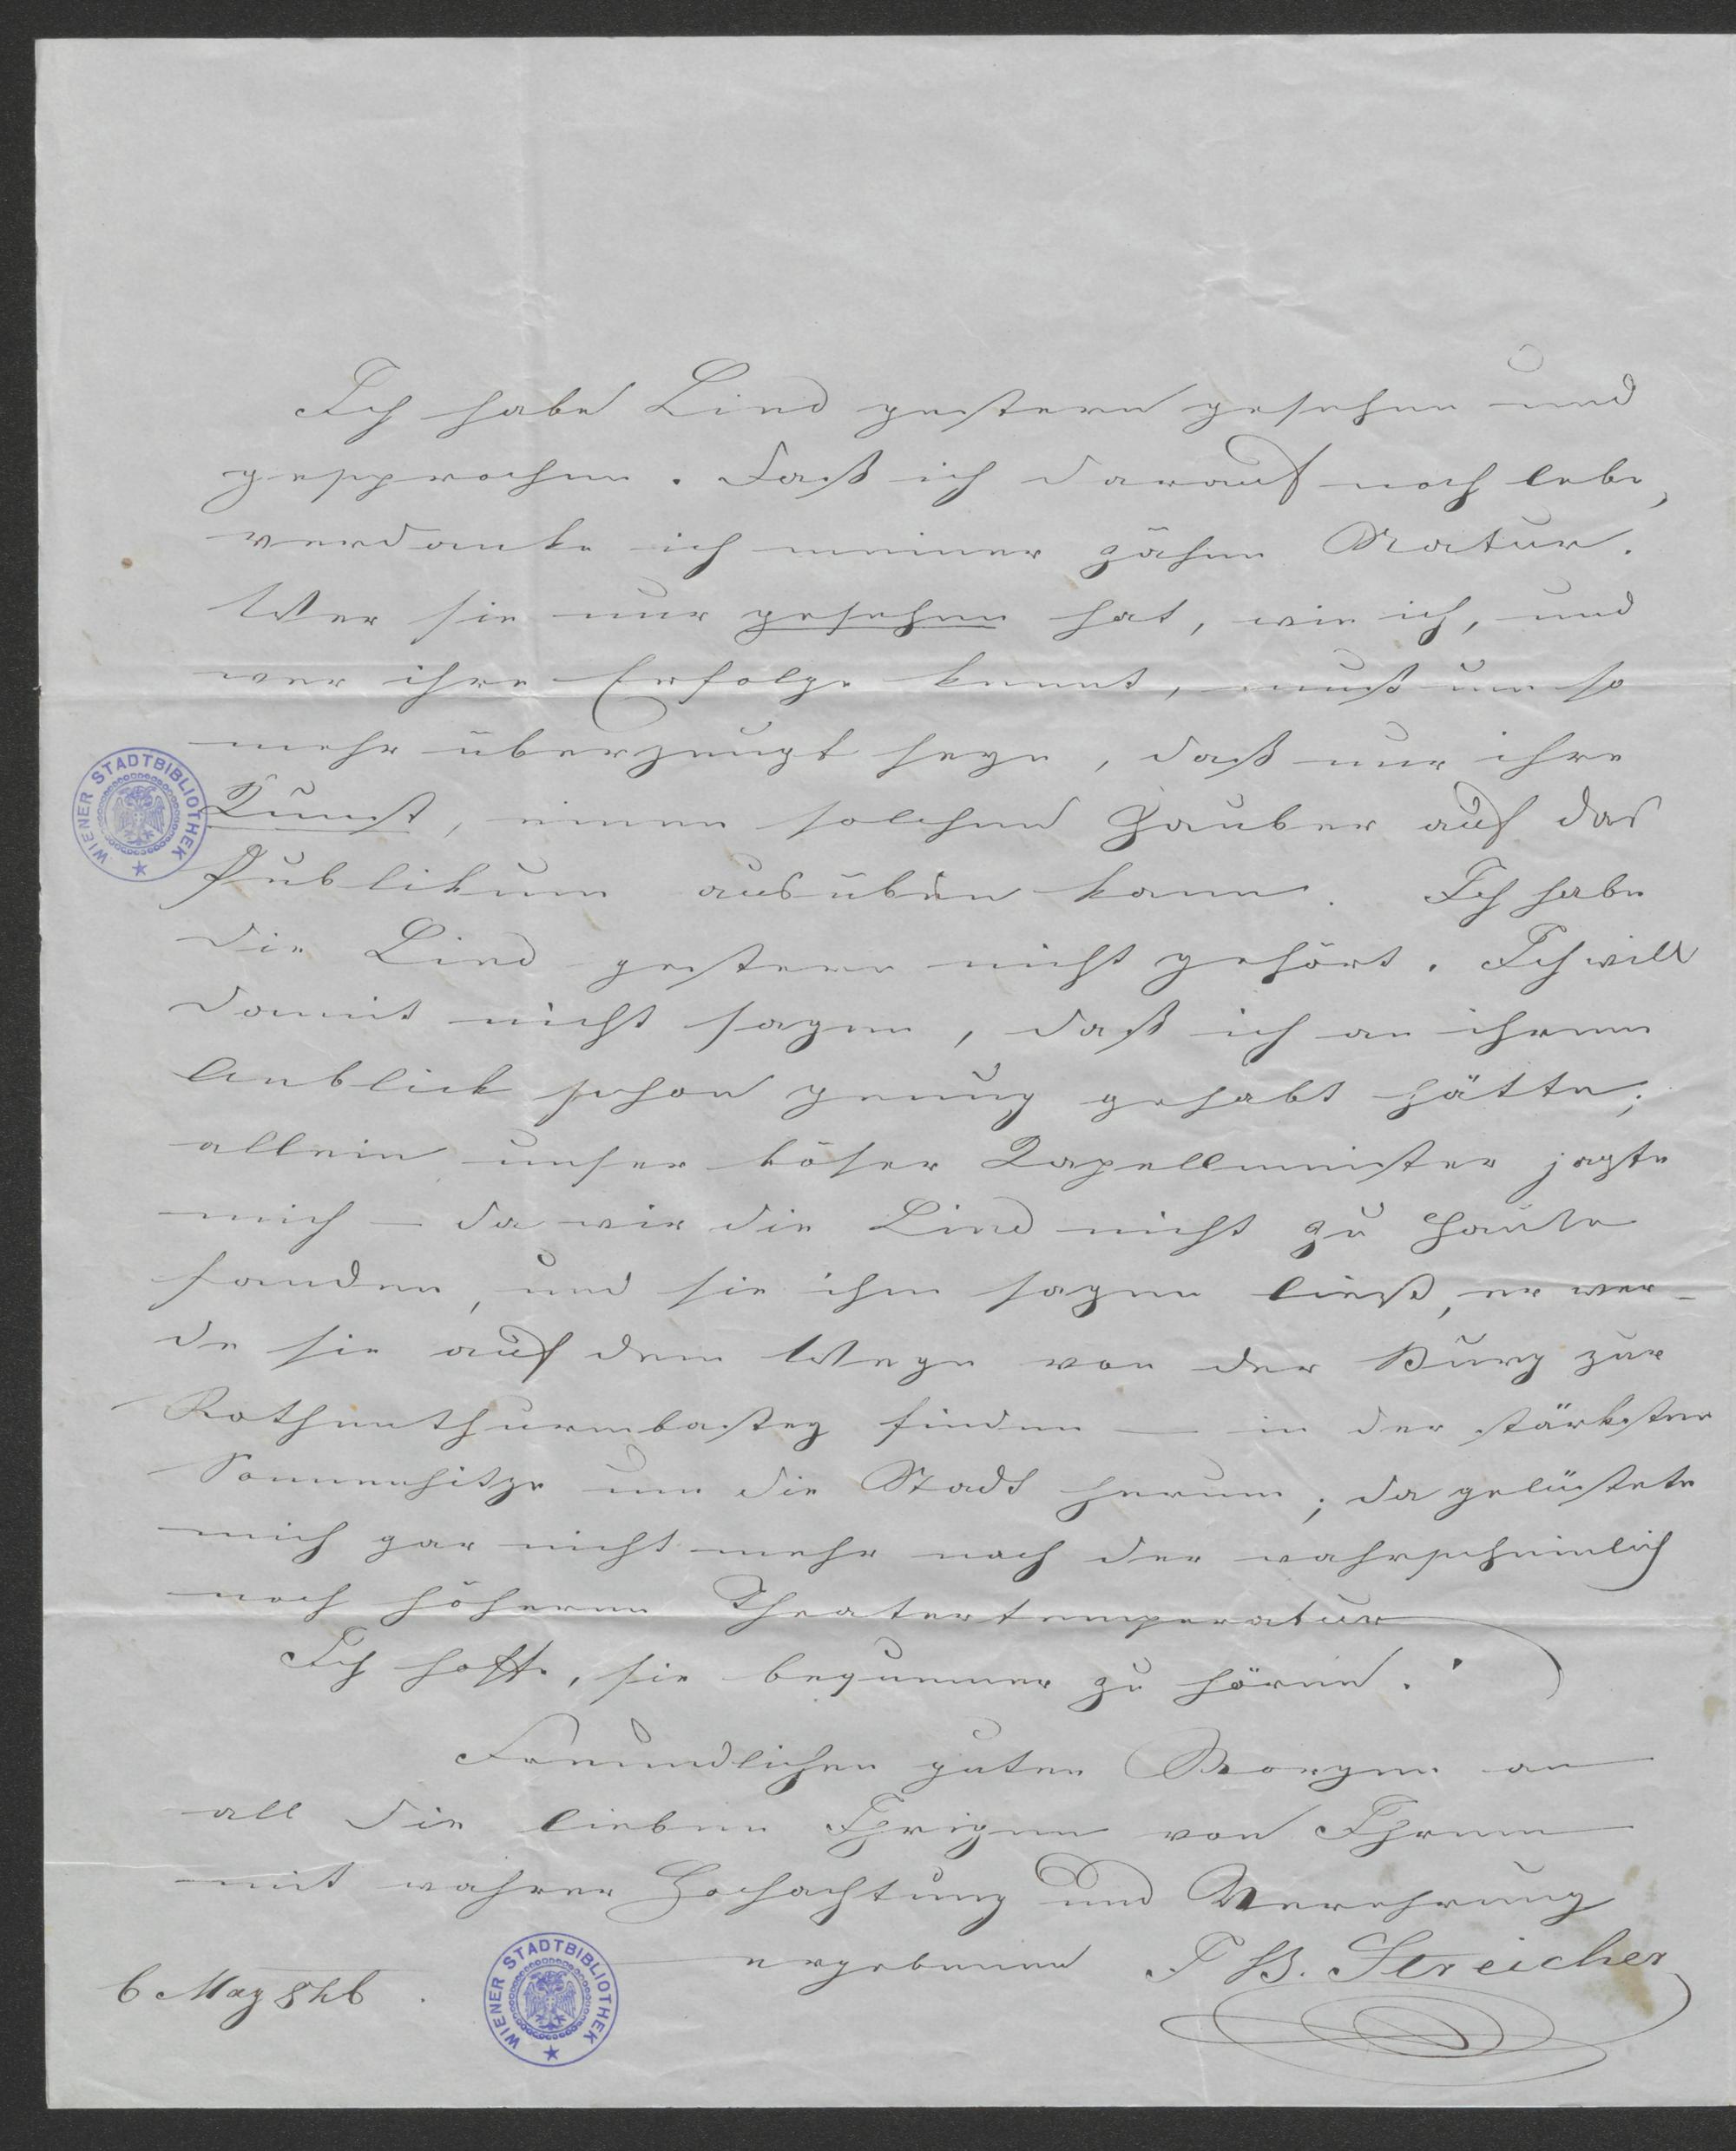 Ich habe Lind gestern gesehen und
gesprochen. Daß ich darauf noch lebe,
verdanke ich meiner zähen Natur.
Wer sie nur gesehen hat, wie ich, und
wer ihre Erfolge kennt, muß um so
mehr überzeugt seyn, daß nur ihre
Kunst, einen solchen Zauber auf das
Publikum ausüben kann. Ich habe
die Lind gestern nicht gehört. Ich will
damit nicht sagen, daß ich an ihrem
Anblick schon genug gehabt hätte;
allein unser böser Kapellmeister jagte
mich – da wir die Lind nicht zu Hause
fanden, und sie ihm sagen ließ, er wer-
de sie auf dem Wege von der Burg zur
Rothenthurmbastey finden – in der stärksten
Sonnenhitze um die Stadt herum; da gelüstete
mich gar nicht mehr nach der wahrscheinlich
noch höheren Theatertemperatur
Ich hoffe, sie bequemer zu hören.
Freundlichen guten Morgen an
all die lieben Ihrigen von Ihrem
mit wahrer Hochachtung und Verehrung
ergebenen J B. Streicher
6 May 846.
WIENER STADTBIBLIOTHEK
WIENER STADTBIBLIOTHEK